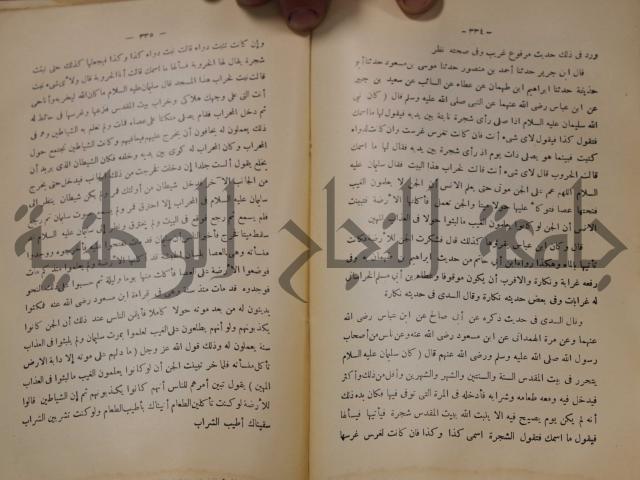 — ٣٣٤ —
ورد فى ذلك حديث مرفوع غريب وفى صحته نظر
قال ابن جرير حدثنا أحمد بن منصور حدثنا موسى بن مسعود حدثنا أبو
حذيفة حدثنا ابراهيم ابن طهمان عن عطاء عن السائب عن سعيد بن جبير
عن ابن عباس رضى الله عنهما عن النبى صلى الله عليه وسلم قال ( كان نبى
الله سليمان عليه السلام اذا صلى رأى شجرة نابتة بين يديه فيقول لها ما اسمك
فتقول كذا فيقول لاى شىء أنت فان كانت تغرس غرست وان كانت لدواء
كتبت فبينما هو يصلى ذات يوم اذ رأى شجرة بين يديه فقال لها ما اسمك
قالت الخروب قال لاى شىء أنت قالت لخراب هذا البيت فقال سليمان عليه
السلام اللهم عم على الجن موتى حتى يعلم الانس أن الجن لا يعلمون الغيب
فنحتها عصا فتوكأ عليها حولا ميتا والجن تعمل فأكلتها الارضة فتبينت
الانس أن الجن لو كانوا يعلمون الغيب ما لبثوا حولا فى العذاب المهين
قال وكان ابن عباس يقرؤها كذلك قال فشكرت الجن للارضة فكانت
تأتيها بالماء وهكذا رواه ابن أبى حاتم من حديث ابراهيم بن طهمان به وفى
رفعه غرابة ونكارة والاقرب أن يكون موقوفا وعطاء بن أبى مسلم الخراسانى
له غرابات وفى بعض حديثه نكارة وقال السدى فى حديثه نكارة
وقال السدى فى حديث ذكره عن أبى صالح عن ابن عباس رضى الله
عنهما وعن مرة الهمدانى عن ابن مسعود رضى الله عنه وعن ناس من أصحاب
رسول الله صلى الله عليه وسلم ورضى الله عنهم قال ( كان سليمان عليه السلام
يتحرر فى بيت المقدس السنة والسنتين والشهر والشهرين وأقل من ذلك وأكثر
فيدخل فيه ومعه طعامه وشرابه فأدخله فى المرة التى توفى فيها فكان بدء ذلك
أنه لم يكن يوم يصبح فيه الا ينبت الله ببيت المقدس شجرة فيأتيها فيسألها
فيقول ما اسمك فتقول الشجرة اسمى كذا وكذا فان كانت لغرس غرسها
— ٣٣٥ —
وإن كانت تنبت دواء قالت نبت دواء كذا وكذا فيجعلها كذلك حتى نبتت
شجرة يقال لها الخروبة فسألها ما اسمك قالت أنا الخروبة قال ولاى شىء نبت
قالت نبت لخراب هذا المسجد قال سليمان عليه السلام ما كان الله ليخربه وأنا حى
أنت التى على وجهك هلاكى وخراب بيت المقدس فنزعها وغرسها فى حائط له
ثم دخل المحراب فقام يصلى متكئا على عصاه فمات ولم تعلم به الشياطين وهم فى
ذلك يعملون له يخافون أن يخرج عليهم فيعاقبهم وكانت الشياطين تجتمع حول
المحراب وكان المحراب له كوى بين يديه وخلفه فكان الشيطان الذى يريد أن
يخلع يقول ألست جلدا إن دخلت فخرجت من ذلك الجانب فيدخل حتى يخرج
من الجانب الآخر فدخل شيطان من أولئك فمر ولم يكن شيطان ينظر إلى
سليمان عليه السلام فى المحراب إلا احترق فمر ولم يسمع صوت سليمان ثم رجع
فلم يسمع ثم رجع فوقع فى البيت ولم يحترق ونظر إلى سليمان عليه السلام قد
سقط ميتا فخرج فأخبر الناس أن سليمان قد مات
منسأته وهى العصا
فوضعوا الارضة على العصا فأكلت منها يوما وليلة ثم حسبوا على ذلك النحو
فوجدوه قد مات منذ سنة وهى فى قراءة ابن مسعود رضى الله عنه فمكثوا
يدينون له من بعد موته حولا كاملا فأيقن الناس عند ذلك أن الجن كانوا
يكذبونهم ولو أنهم يطلعون على الغيب لعلموا بموت سليمان ولم يلبثوا فى العذاب
سنة يعملون له وذلك قول الله عز وجل ( ما دلهم على موته إلا دابة الارض
تأكل منسأته فلما خر تبينت الجن أن لو كانوا يعلمون الغيب ما لبثوا فى العذاب
المهين ) يقول تبين أمرهم للناس أنهم كانوا يكذبونهم ثم إن الشياطين قالوا
للأرضة لو كنت تأكلين الطعام أتيناك بأطيب الطعام ولو كنت تشربين الشراب
سقيناك أطيب الشراب
جامعة النجاح الوطنية